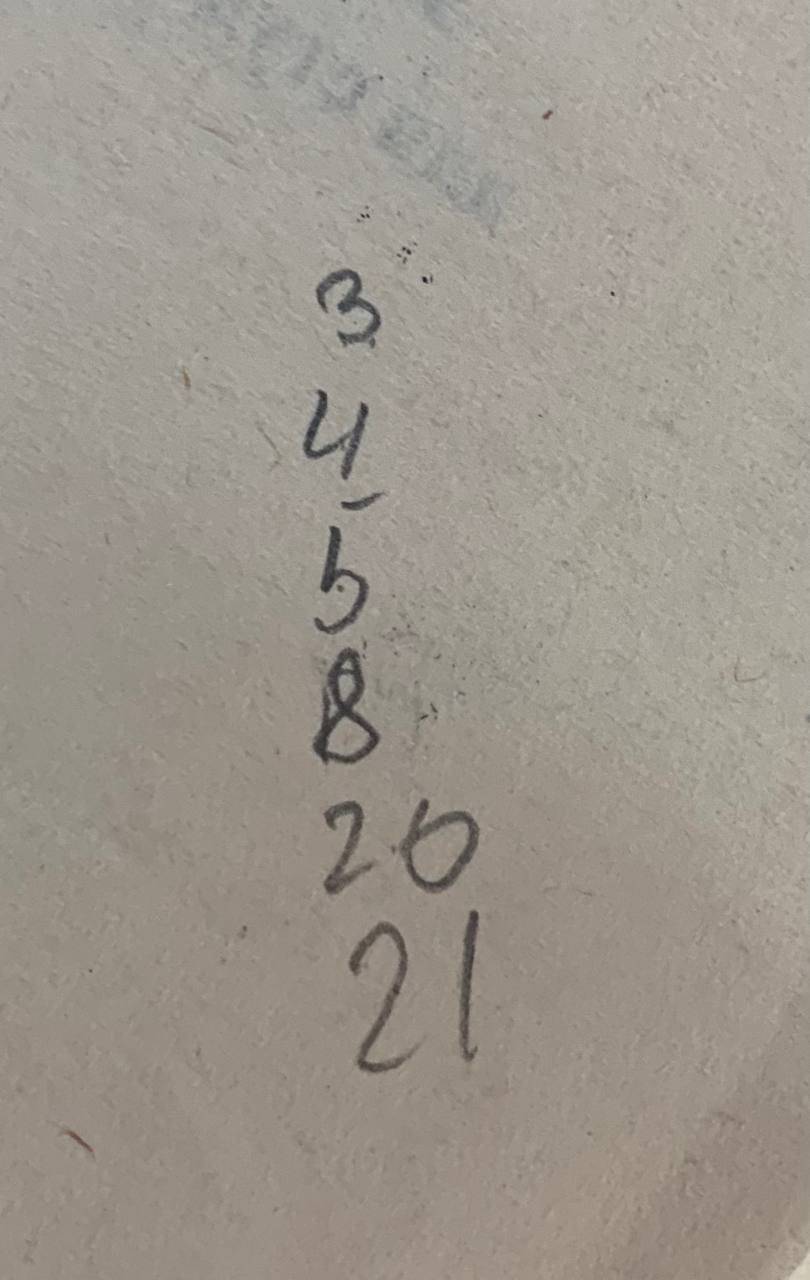 3
4
5
8
20
21